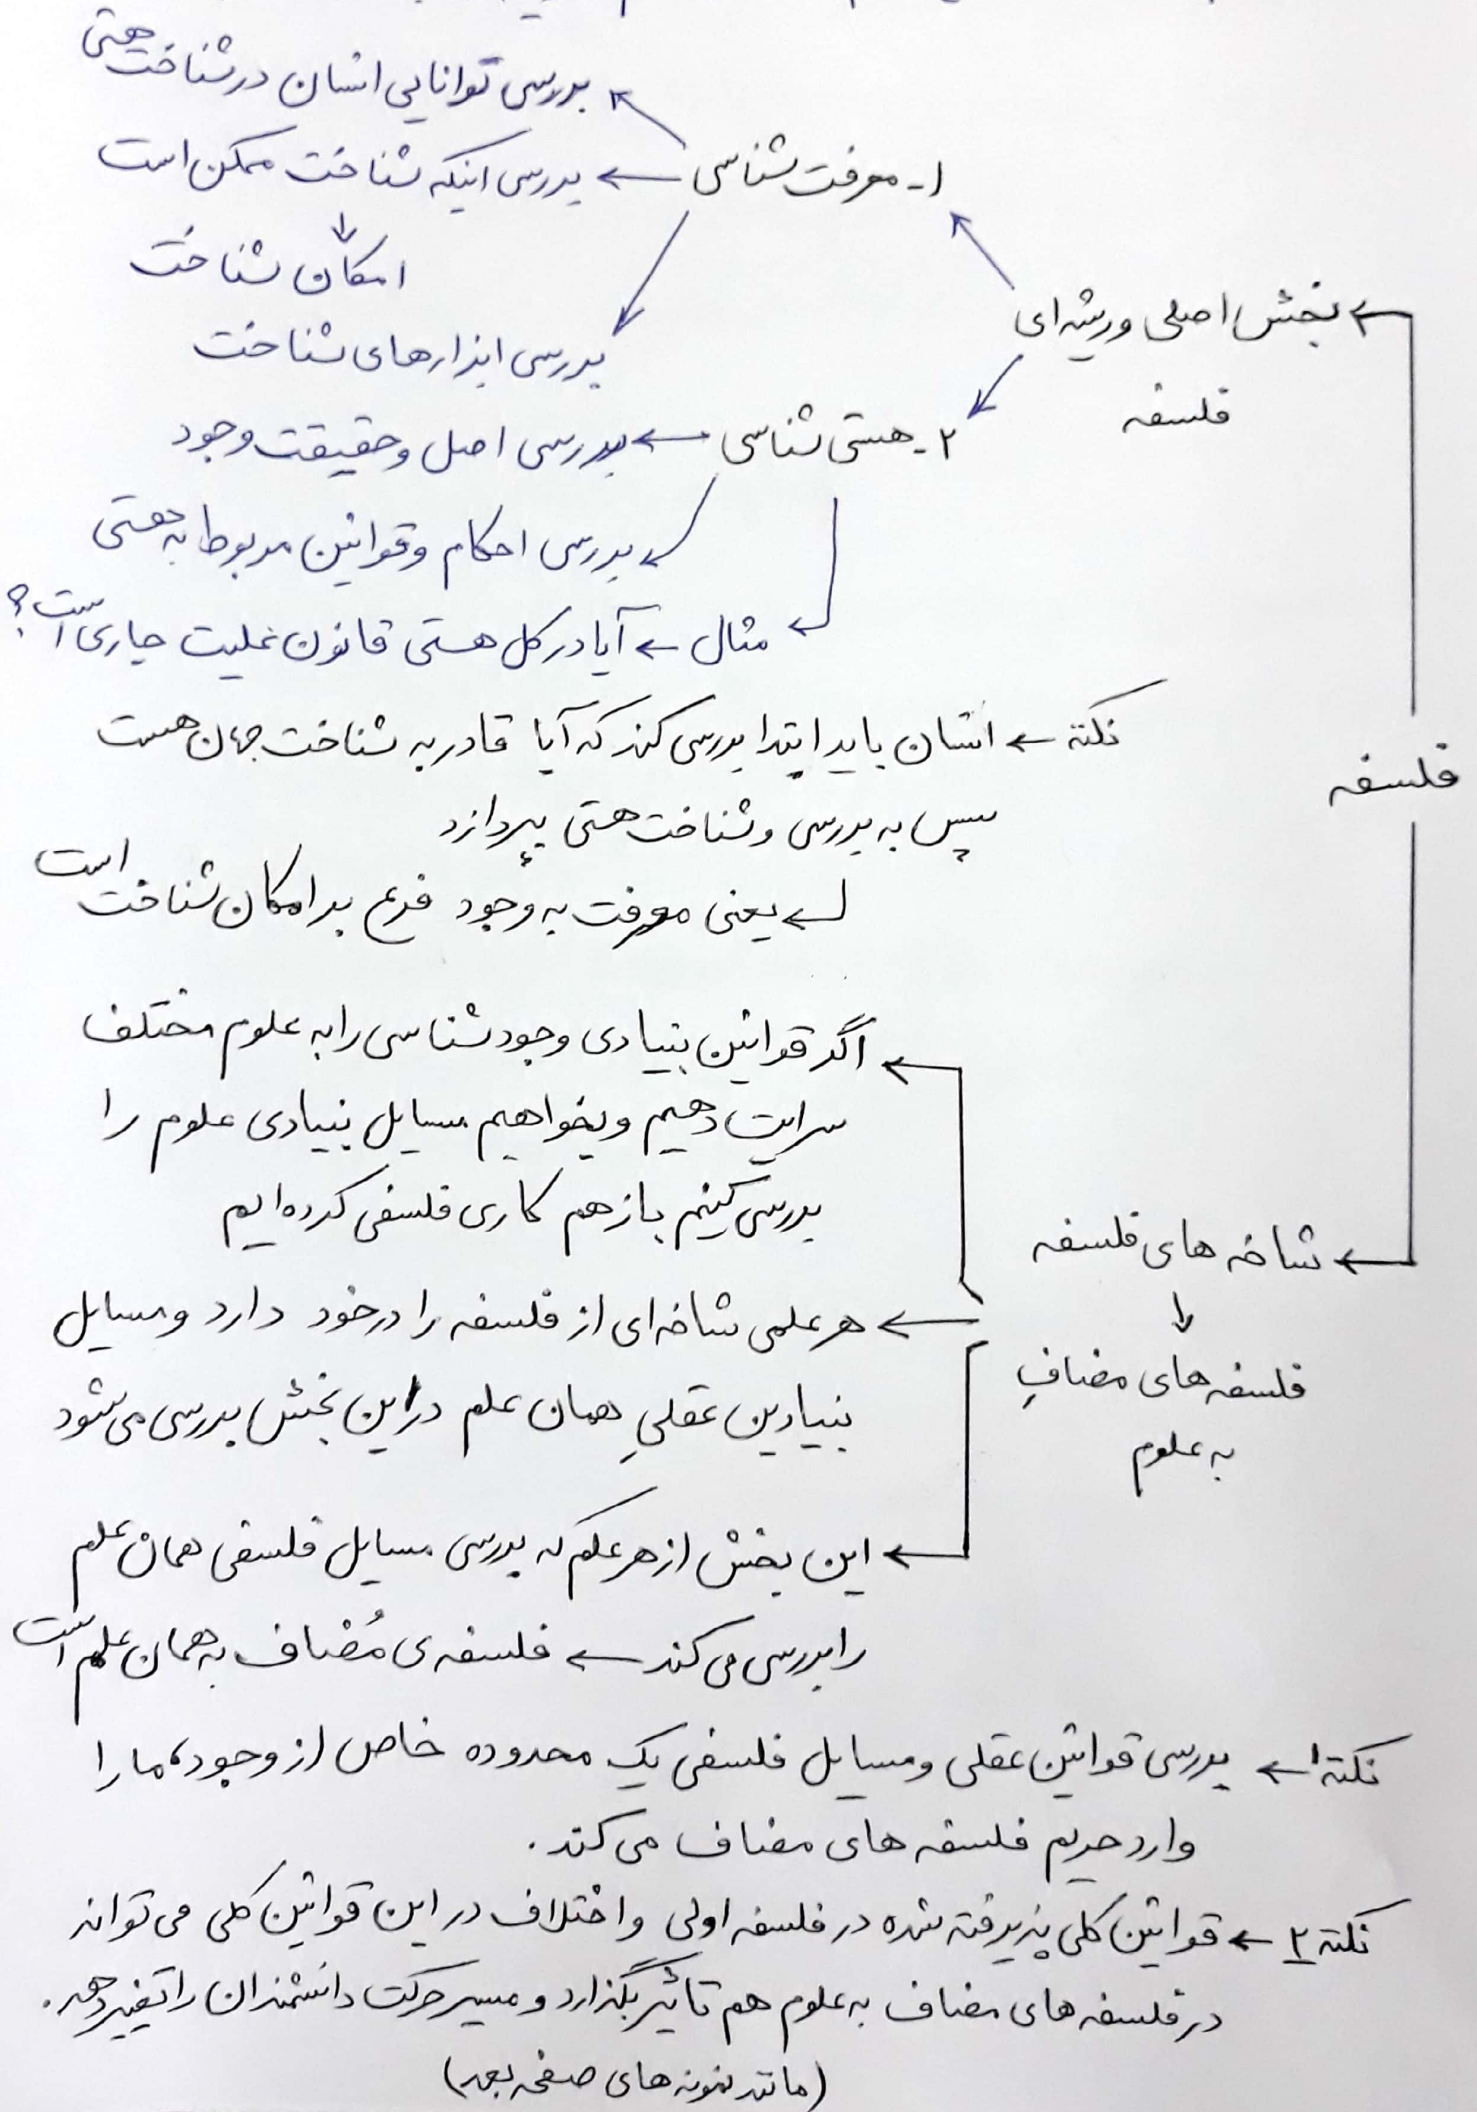 هستی
بررسی توانایی انسان در شناخت
۱- معرفت شناسی ← بررسی اینکه شناخت ممکن است
↓
امکان شناخت
بخش اصلی و ریشه ای
فلسفه
بررسی ابزارهای شناخت
۲- هستی شناسی ← بررسی اصل و حقیقت وجود
بررسی احکام و قوانین مربوط به هستی
مثال ← آیا در کل هستی قانون علیت جاری است؟
نکته ← انسان باید ابتدا بررسی کند که آیا قادر به شناخت جهان هست
فلسفه
سپس به بررسی و شناخت هستی بپردازد
یعنی معرفت به وجود فرع بر امکان شناخت است
اگر قوانین بنیادی وجودشناسی را به علوم مختلف
سرایت دهیم و بخواهیم مسایل بنیادی علوم را
بررسی کنیم باز هم کاری فلسفی کرده ایم
شاخه های فلسفه
↓
فلسفه های مضافِ
به علوم
هر علمی شاخه ای از فلسفه را در خود دارد و مسایل
بنیادین عقلیِ همان علم در این بخش بررسی می شود
این بخش از هر علم که بررسی مسایل فلسفی همان علم
را بررسی می کند ← فلسفه ی مُضاف به همان علم است
نکته ۱ ← بررسی قوانین عقلی و مسایل فلسفی یک محدوده خاص از وجود، ما را
وارد حریم فلسفه های مضاف می کند.
نکته ۲ ← قوانین کلی پذیرفته شده در فلسفه اولی و اختلاف در این قوانین کلی می تواند
در فلسفه های مضاف به علوم هم تاثیر بگذارد و مسیر حرکت دانشمندان را تغییر دهد.
(مانند نمونه های صفحه بعد)